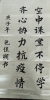 空中课堂不停学
齐心协力抗疫情